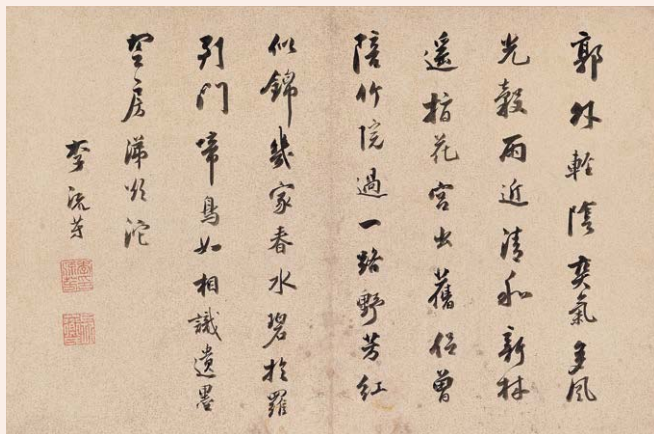 郭外輕陰爽氣多風
光穀雨近清和新林
遙指花宮出舊侶曾
陪竹院過一路野芳紅
似錦幾家春水碧於羅
到門啼鳥如相識遺墨
空房涕沱
李流芳